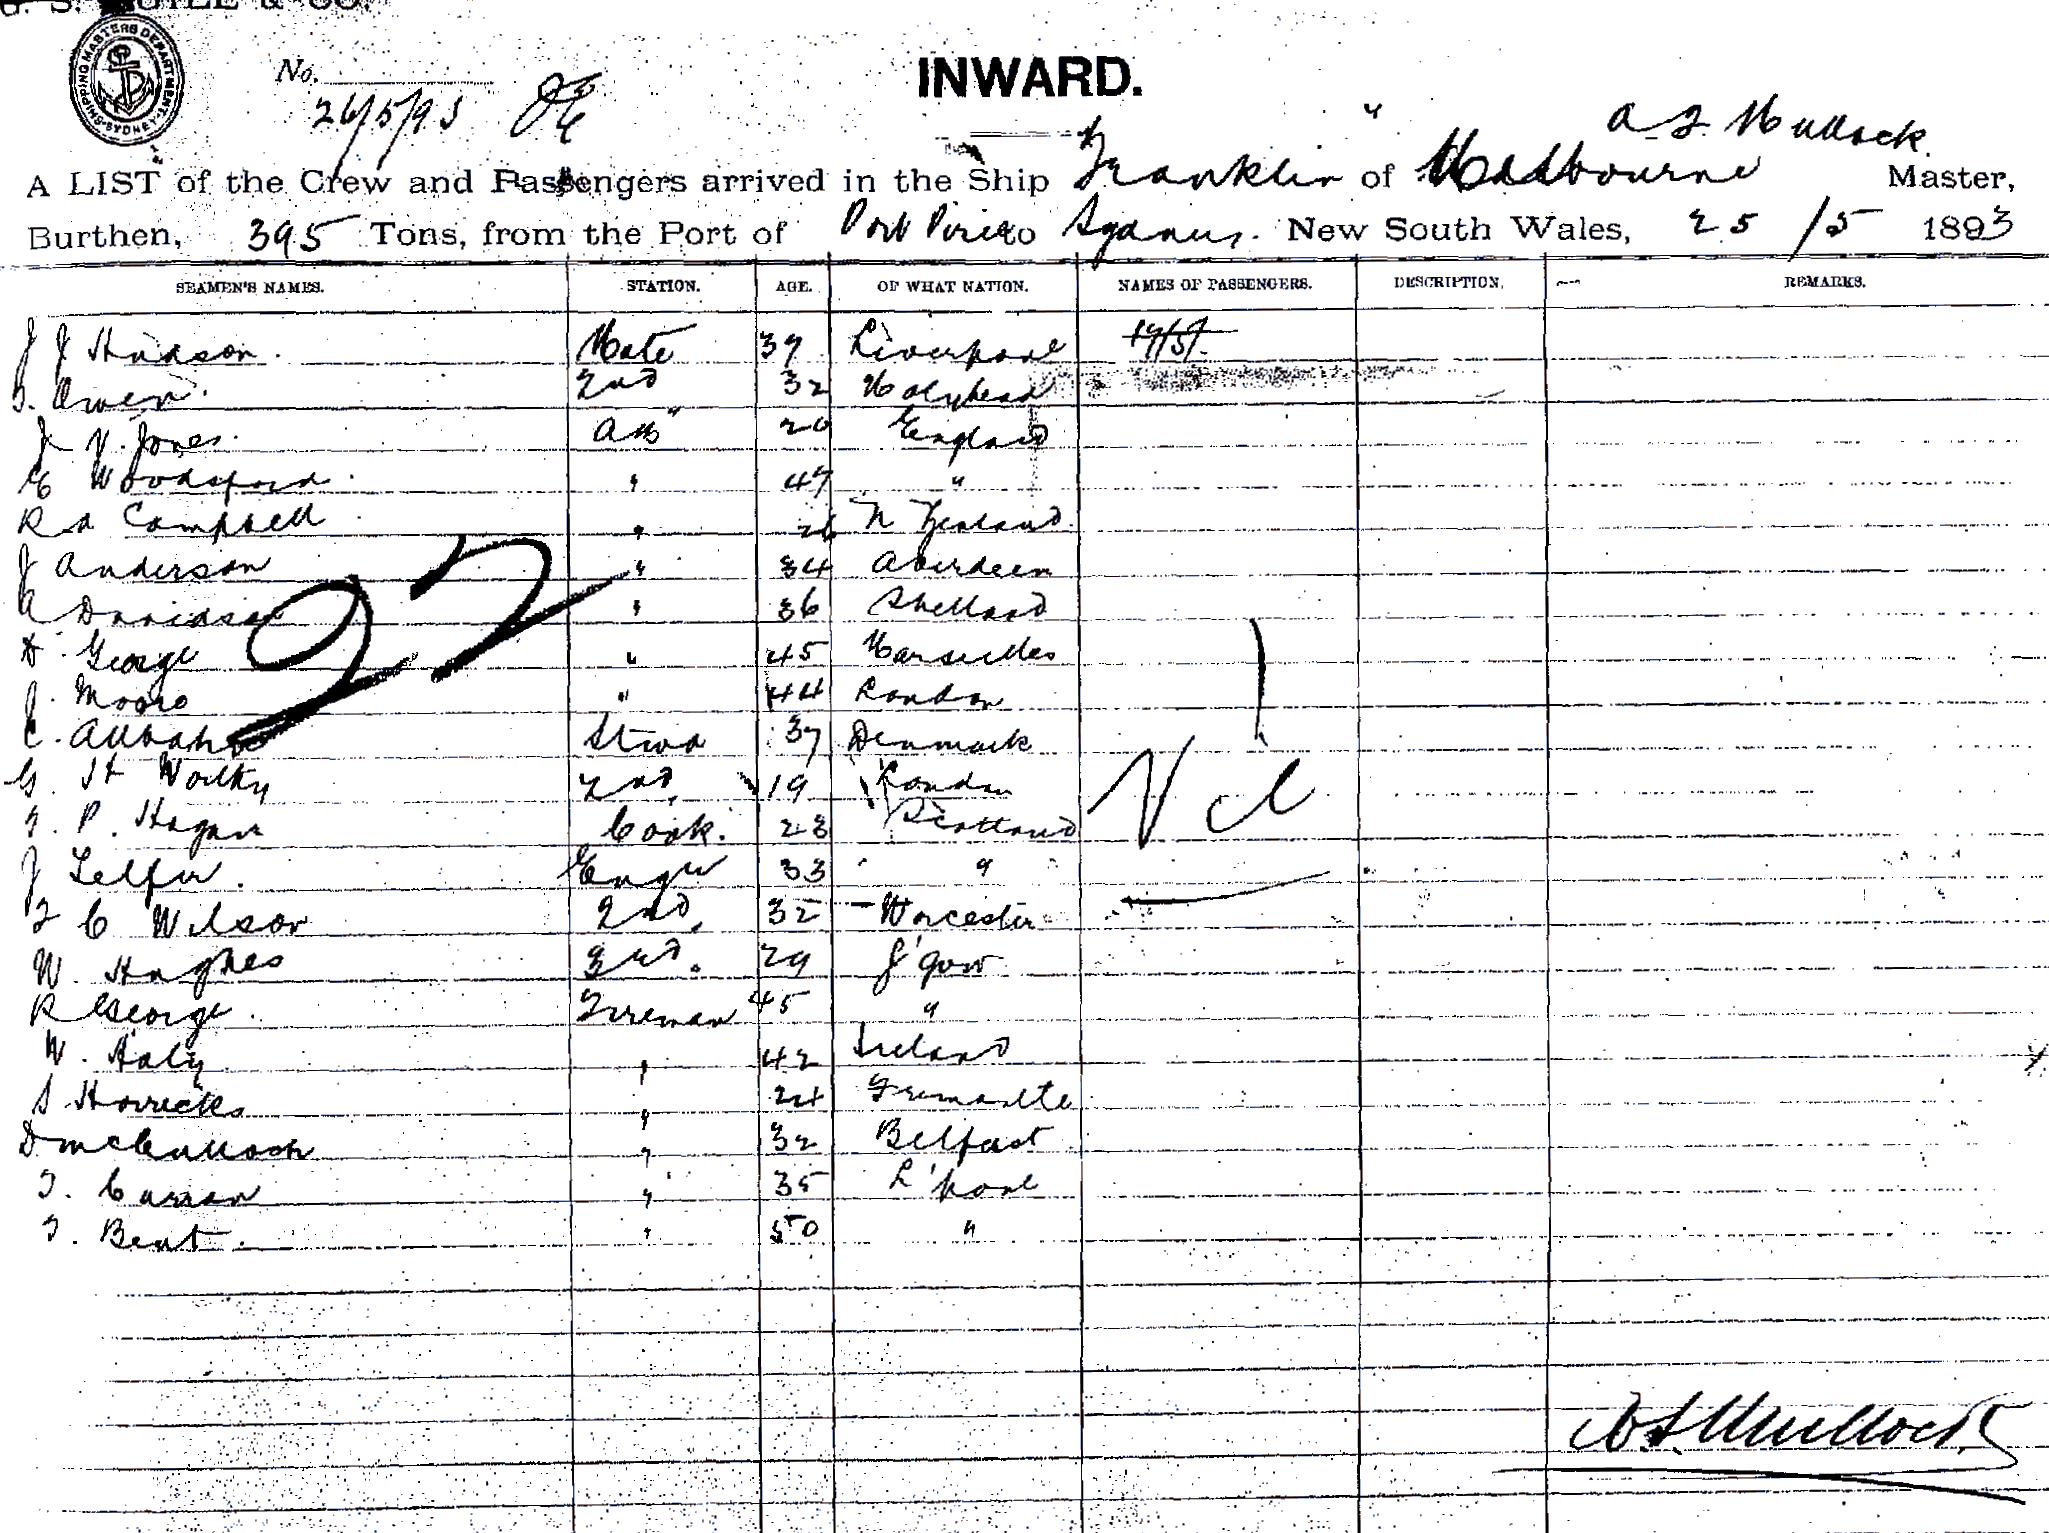 & CO.
SHIPPING MASTERS DEPARTMENT SYDNEY
No.
26/5/93
INWARD.
A LIST of the Crew and Passengers arrived in the Ship Franklin of Melbourne A J Mullock Master,
Burthen, 395 Tons, from the Port of Port Pirie to Sydney. New South Wales, 25/5 1893
SEAMEN'S NAMES. STATION. AGE. OF WHAT NATION. NAMES OF PASSENGERS. DESCRIPTION. REMARKS.
J J Hudson Mate 39 Liverpool
Owen 2nd 32 Holyhead
J V. Jones AB 20 England
E Woodsford " 47 "
R A Campbell " 26 N Zealand
J Anderson " 34 Aberdeen
A Davidson " 36 Shetland
D George " 45 Marseilles
J. Moore " 44 London
C. Stwd 37 Denmark
G. St 2nd 19 London
T. P. Hagan Cook. 23 Scotland
J Telfer Engr 33 "
T C Wilson 2nd 32 Worcester
W. Hughes 3rd. 29 G'gow
R George Fireman 45 "
W. Haly " 42 Ireland
S Horrocks " 24 Fremantle
D McCulloch " 32 Belfast
T. Curran " 35 L'pool
T. Bent " 50 "
22
A J Mullock